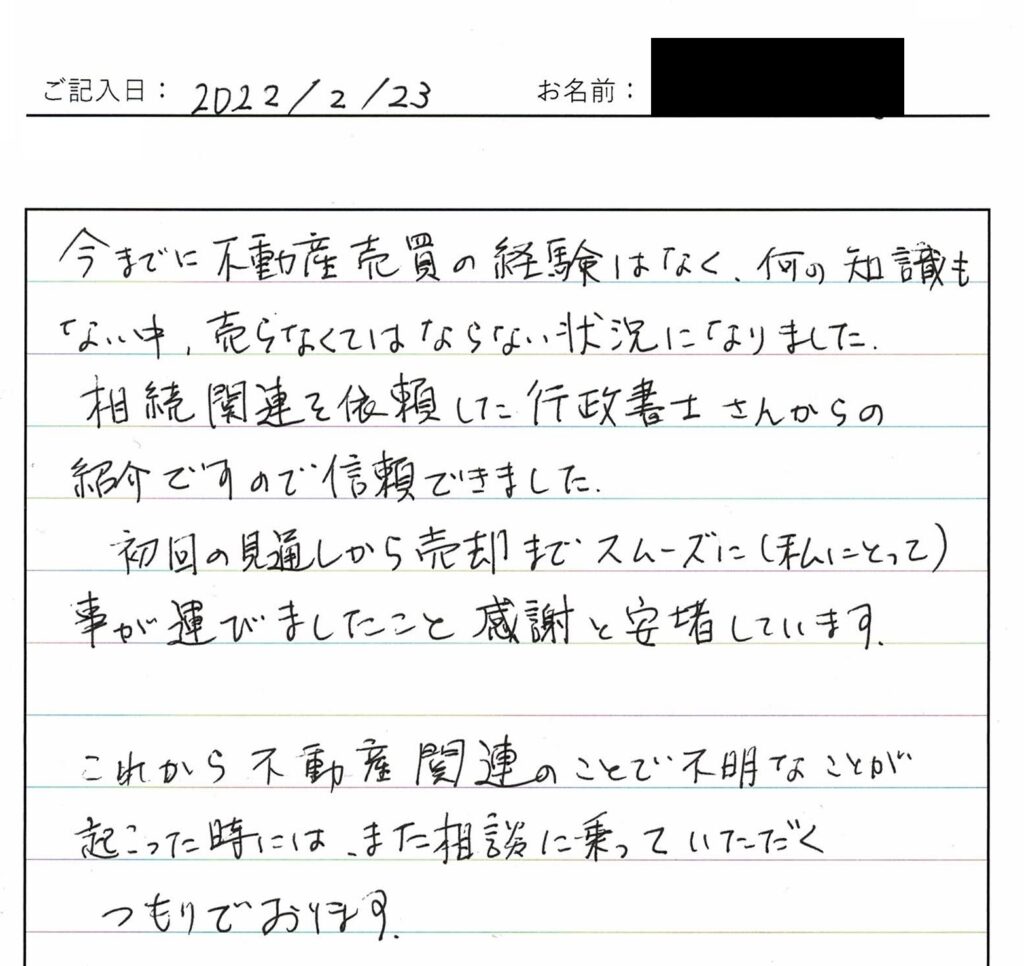 ご記入日: 2022/2/23 お名前:
今までに不動産売買の経験はなく、何の知識も
ない中、売らなくてはならない状況になりました.
相続関連を依頼した行政書士さんからの
紹介ですので信頼できました.
初回の見通しから売却までスムーズに(私にとって)
事が運びましたこと感謝と安堵しています.
これから不動産関連のことで不明なことが
起こった時には、また相談に乗っていただく
つもりでおります.